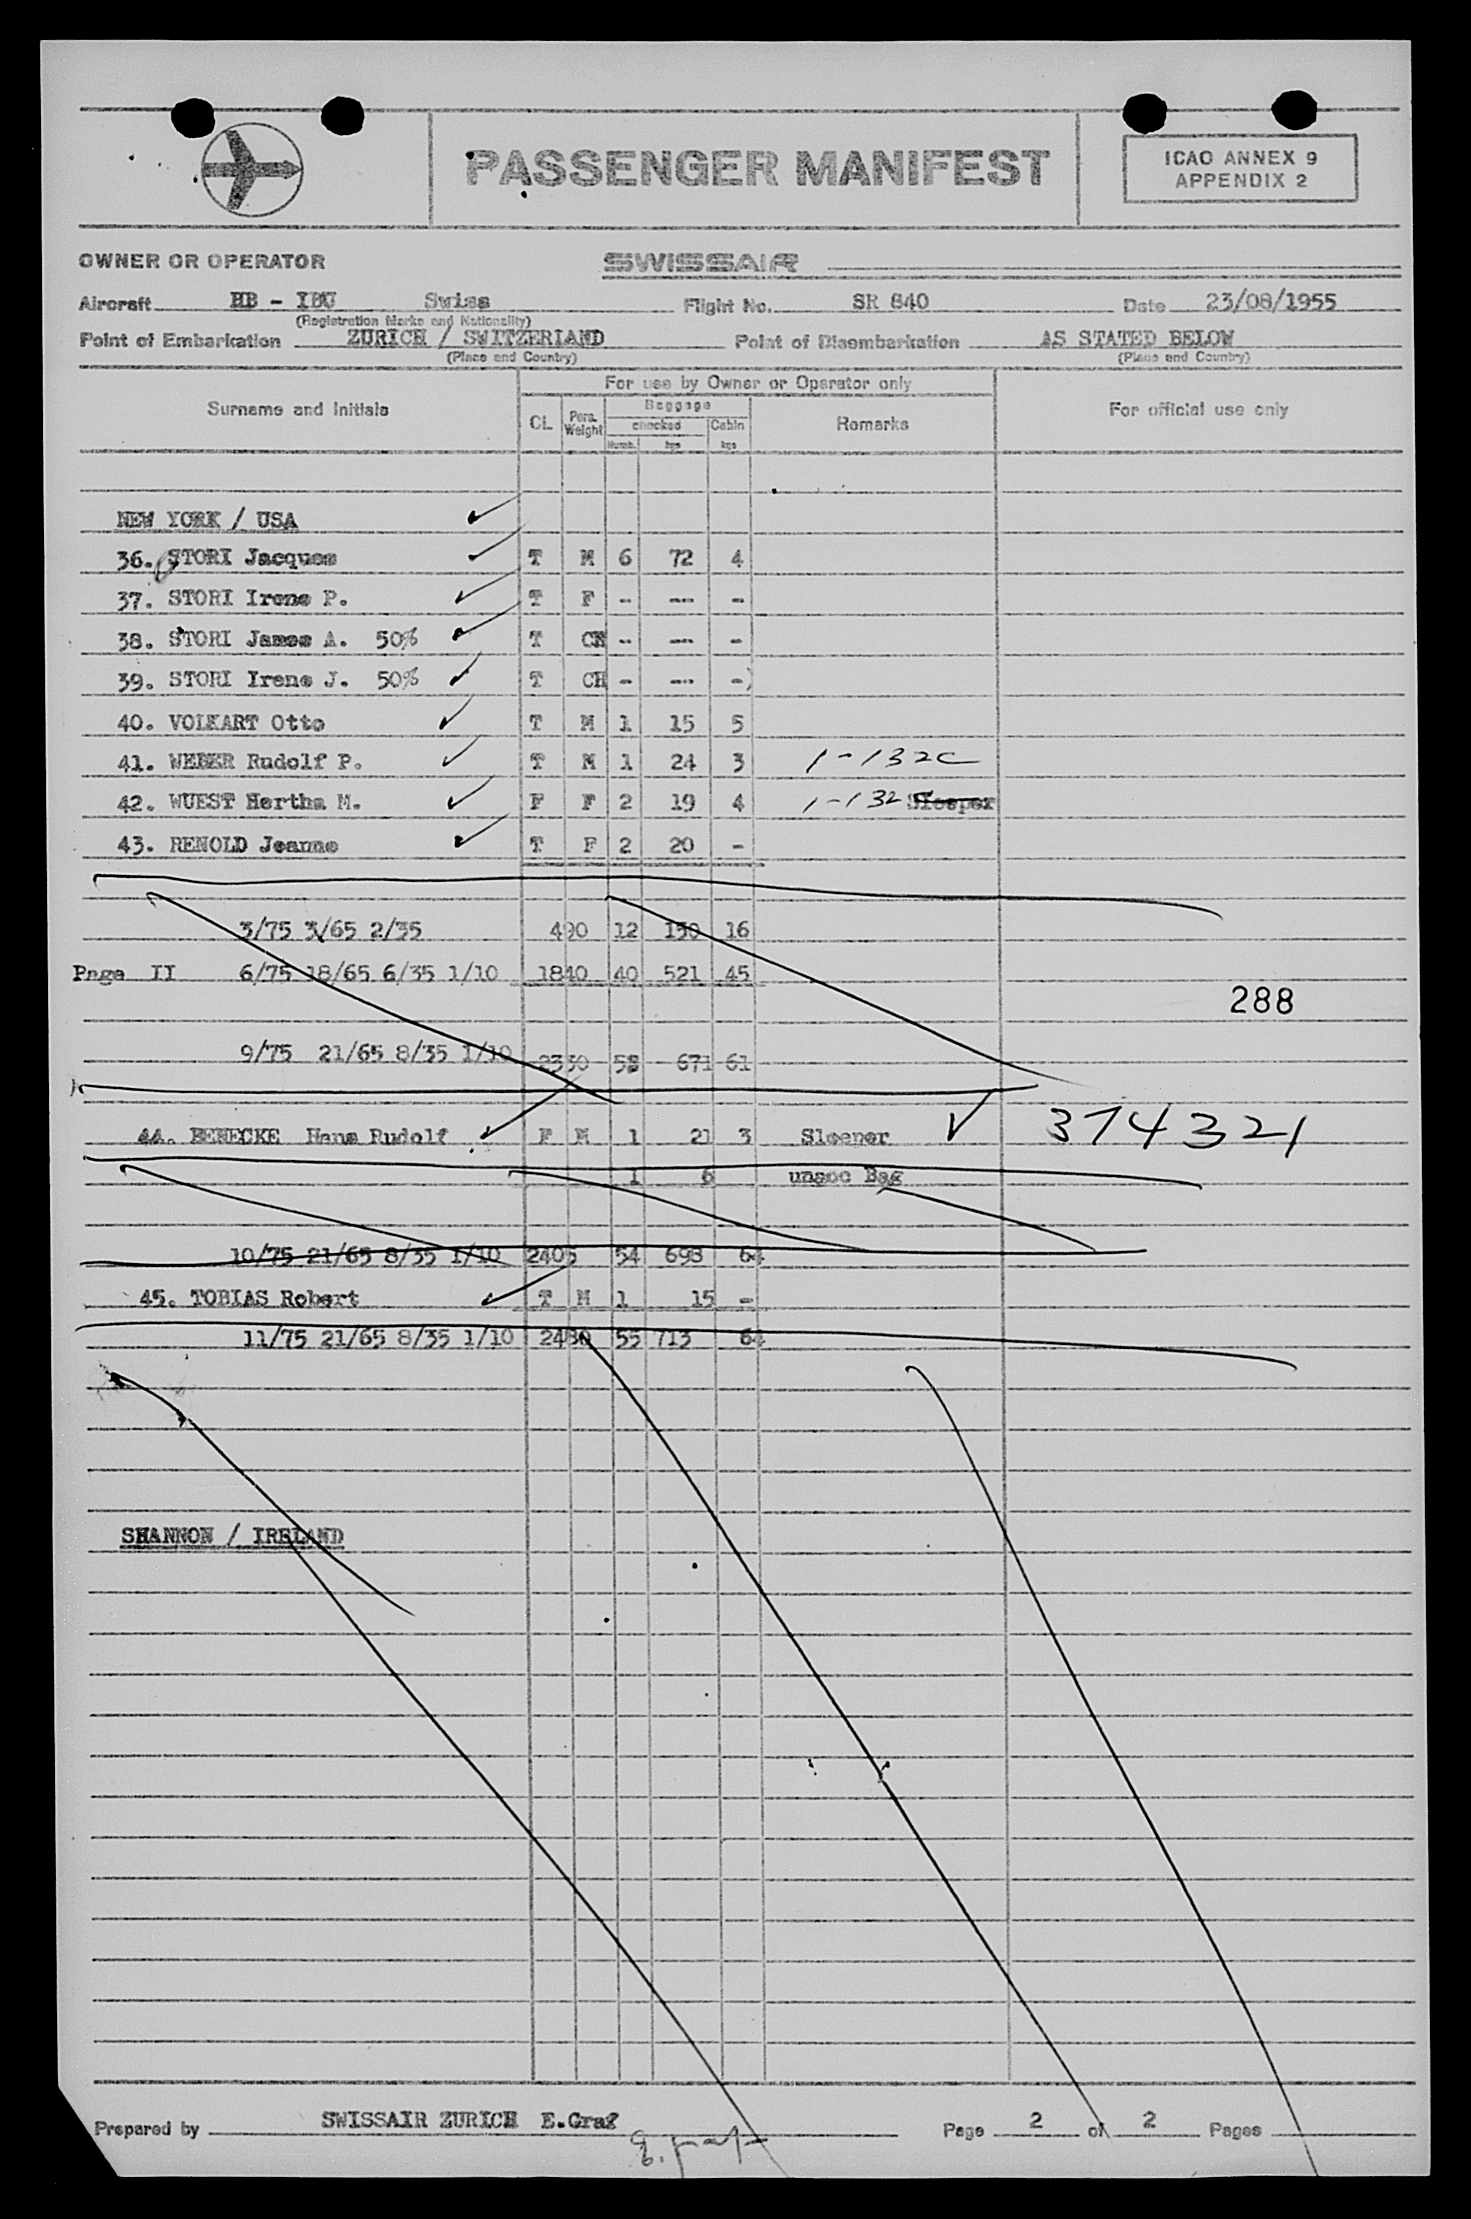 PASSENGER MANIFEST
ICAO ANNEX 9
APPENDIX 2
OWNER OR OPERATOR SWISSAIR
Aircraft HB - IBU Swiss Flight No. SR 840 Date 23/08/1955
(Registration Marks and Nationality)
Point of Embarkation ZURICH / SWITZERLAND Point of Disembarkation AS STATED BELOW
(Place and Country) (Place and Country)
For use by Owner or Operator only
Surname and Initials CL Pers. Weight Baggage Remarks For official use only
checked Cabin
Numb. kgs kgs
NEW YORK / USA
36. STORI Jacques T M 6 72 4
37. STORI Irene P. T F - --- -
38. STORI James A. 50% T CH - --- -
39. STORI Irene J. 50% T CH - --- -
40. VOLKART Otto T M 1 15 5
41. WEBER Rudolf P. T M 1 24 3 1-132C
42. WUEST Hertha M. F F 2 19 4 1-132 Sleeper
43. RENOLD Jeanne T F 2 20 -
3/75 3/65 2/35 490 12 150 16
Page II 6/75 18/65 6/35 1/10 1840 40 521 45
288
9/75 21/65 8/35 1/10 2330 52 671 61
44. BENECKE Hans Rudolf F M 1 21 3 Sleeper 374321
1 6 unacc Bag
10/75 21/65 8/35 1/10 2405 54 698 64
45. TOBIAS Robert T M 1 15 -
11/75 21/65 8/35 1/10 2480 55 713 64
SHANNON / IRELAND
Prepared by SWISSAIR ZURICH E.Graf Page 2 of 2 Pages